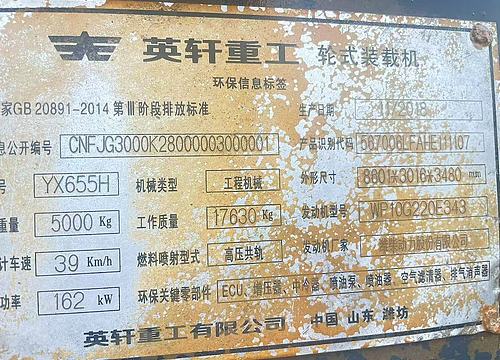 英轩重工 轮式装载机
环保信息标签
家GB 20891-2014 第Ⅲ阶段排放标准 生产日期 11/2018
息公开编号 CNFJG3000K28000003000001 产品识别代码 567006LFAHE111107
号 YX655H 机械类型 工程机械 外形尺寸 8601*3016*3480 mm
重量 5000 Kg 工作质量 17630 Kg 发动机型号 WP10G220E343
计车速 39 Km/h 燃料喷射型式 高压共轨 发动机厂家 潍柴动力股份有限公司
功率 162 kW 环保关键零部件 ECU、增压器、中冷器、喷油泵、喷油器、空气滤清器、排气消声器
英轩重工有限公司 中国 山东 潍坊